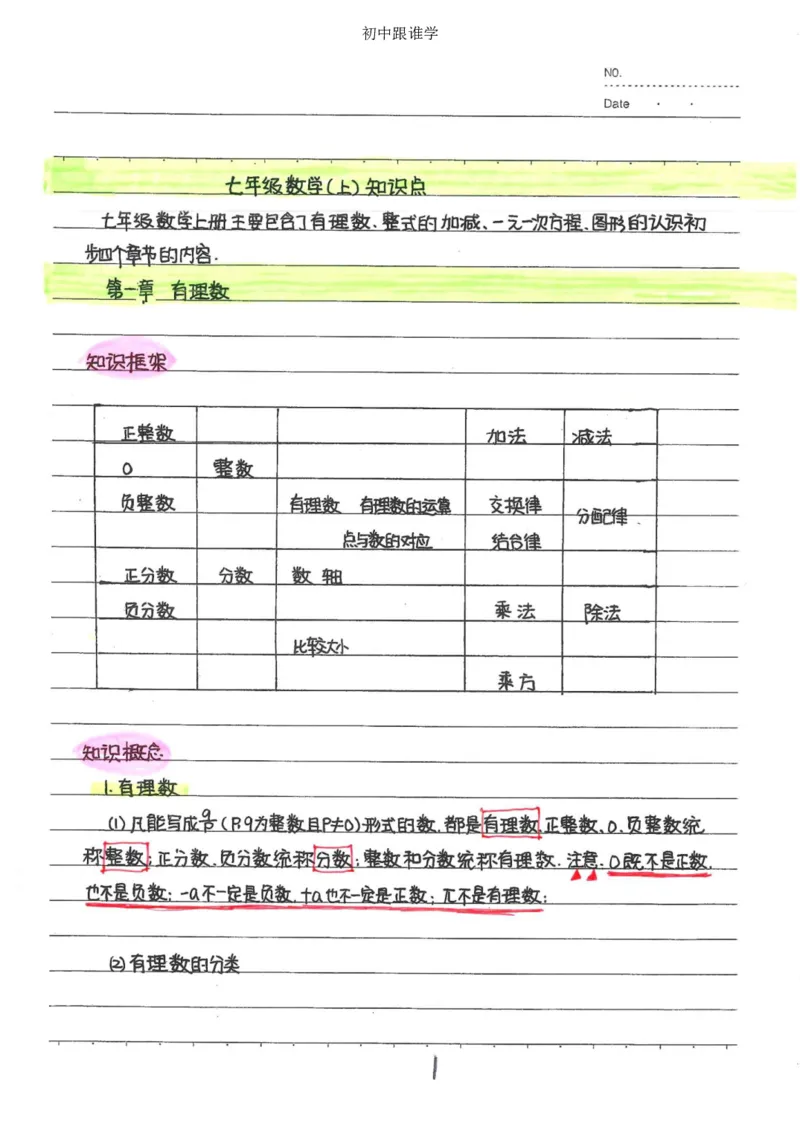 初中跟谁学
NO.
Date
七年级数学(上)知识点
七年级数学上册主要包含了有理数、整式的加减、一元一次方程、图形的认识初
步四个章节的内容.
第一章 有理数
知识框架
正整数 加法 减法
0 整数
负整数 有理数 有理数的运算 交换律 分配律.
点与数的对应 结合律
正分数 分数 数轴
负分数 乘法 除法
比较大小
乘方
知识概念
1.有理数
(1)凡能写成q/p(P.q为整数且P≠0)形式的数,都是有理数,正整数、0、负整数统
称整数;正分数、负分数统称分数;整数和分数统称有理数.注意:0既不是正数,
也不是负数;-a不一定是负数,+a也不一定是正数;π不是有理数;
(2)有理数的分类
1